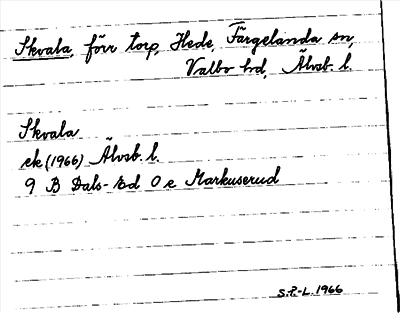 Skvala, förr torp, Hede, Färgelanda sn,
Valbo hd, Älvsb. l.
Skvala
ek (1966) Älvsb. l.
9 B Dals-Ed 0 e Markuserud
S.P.-L. 1966